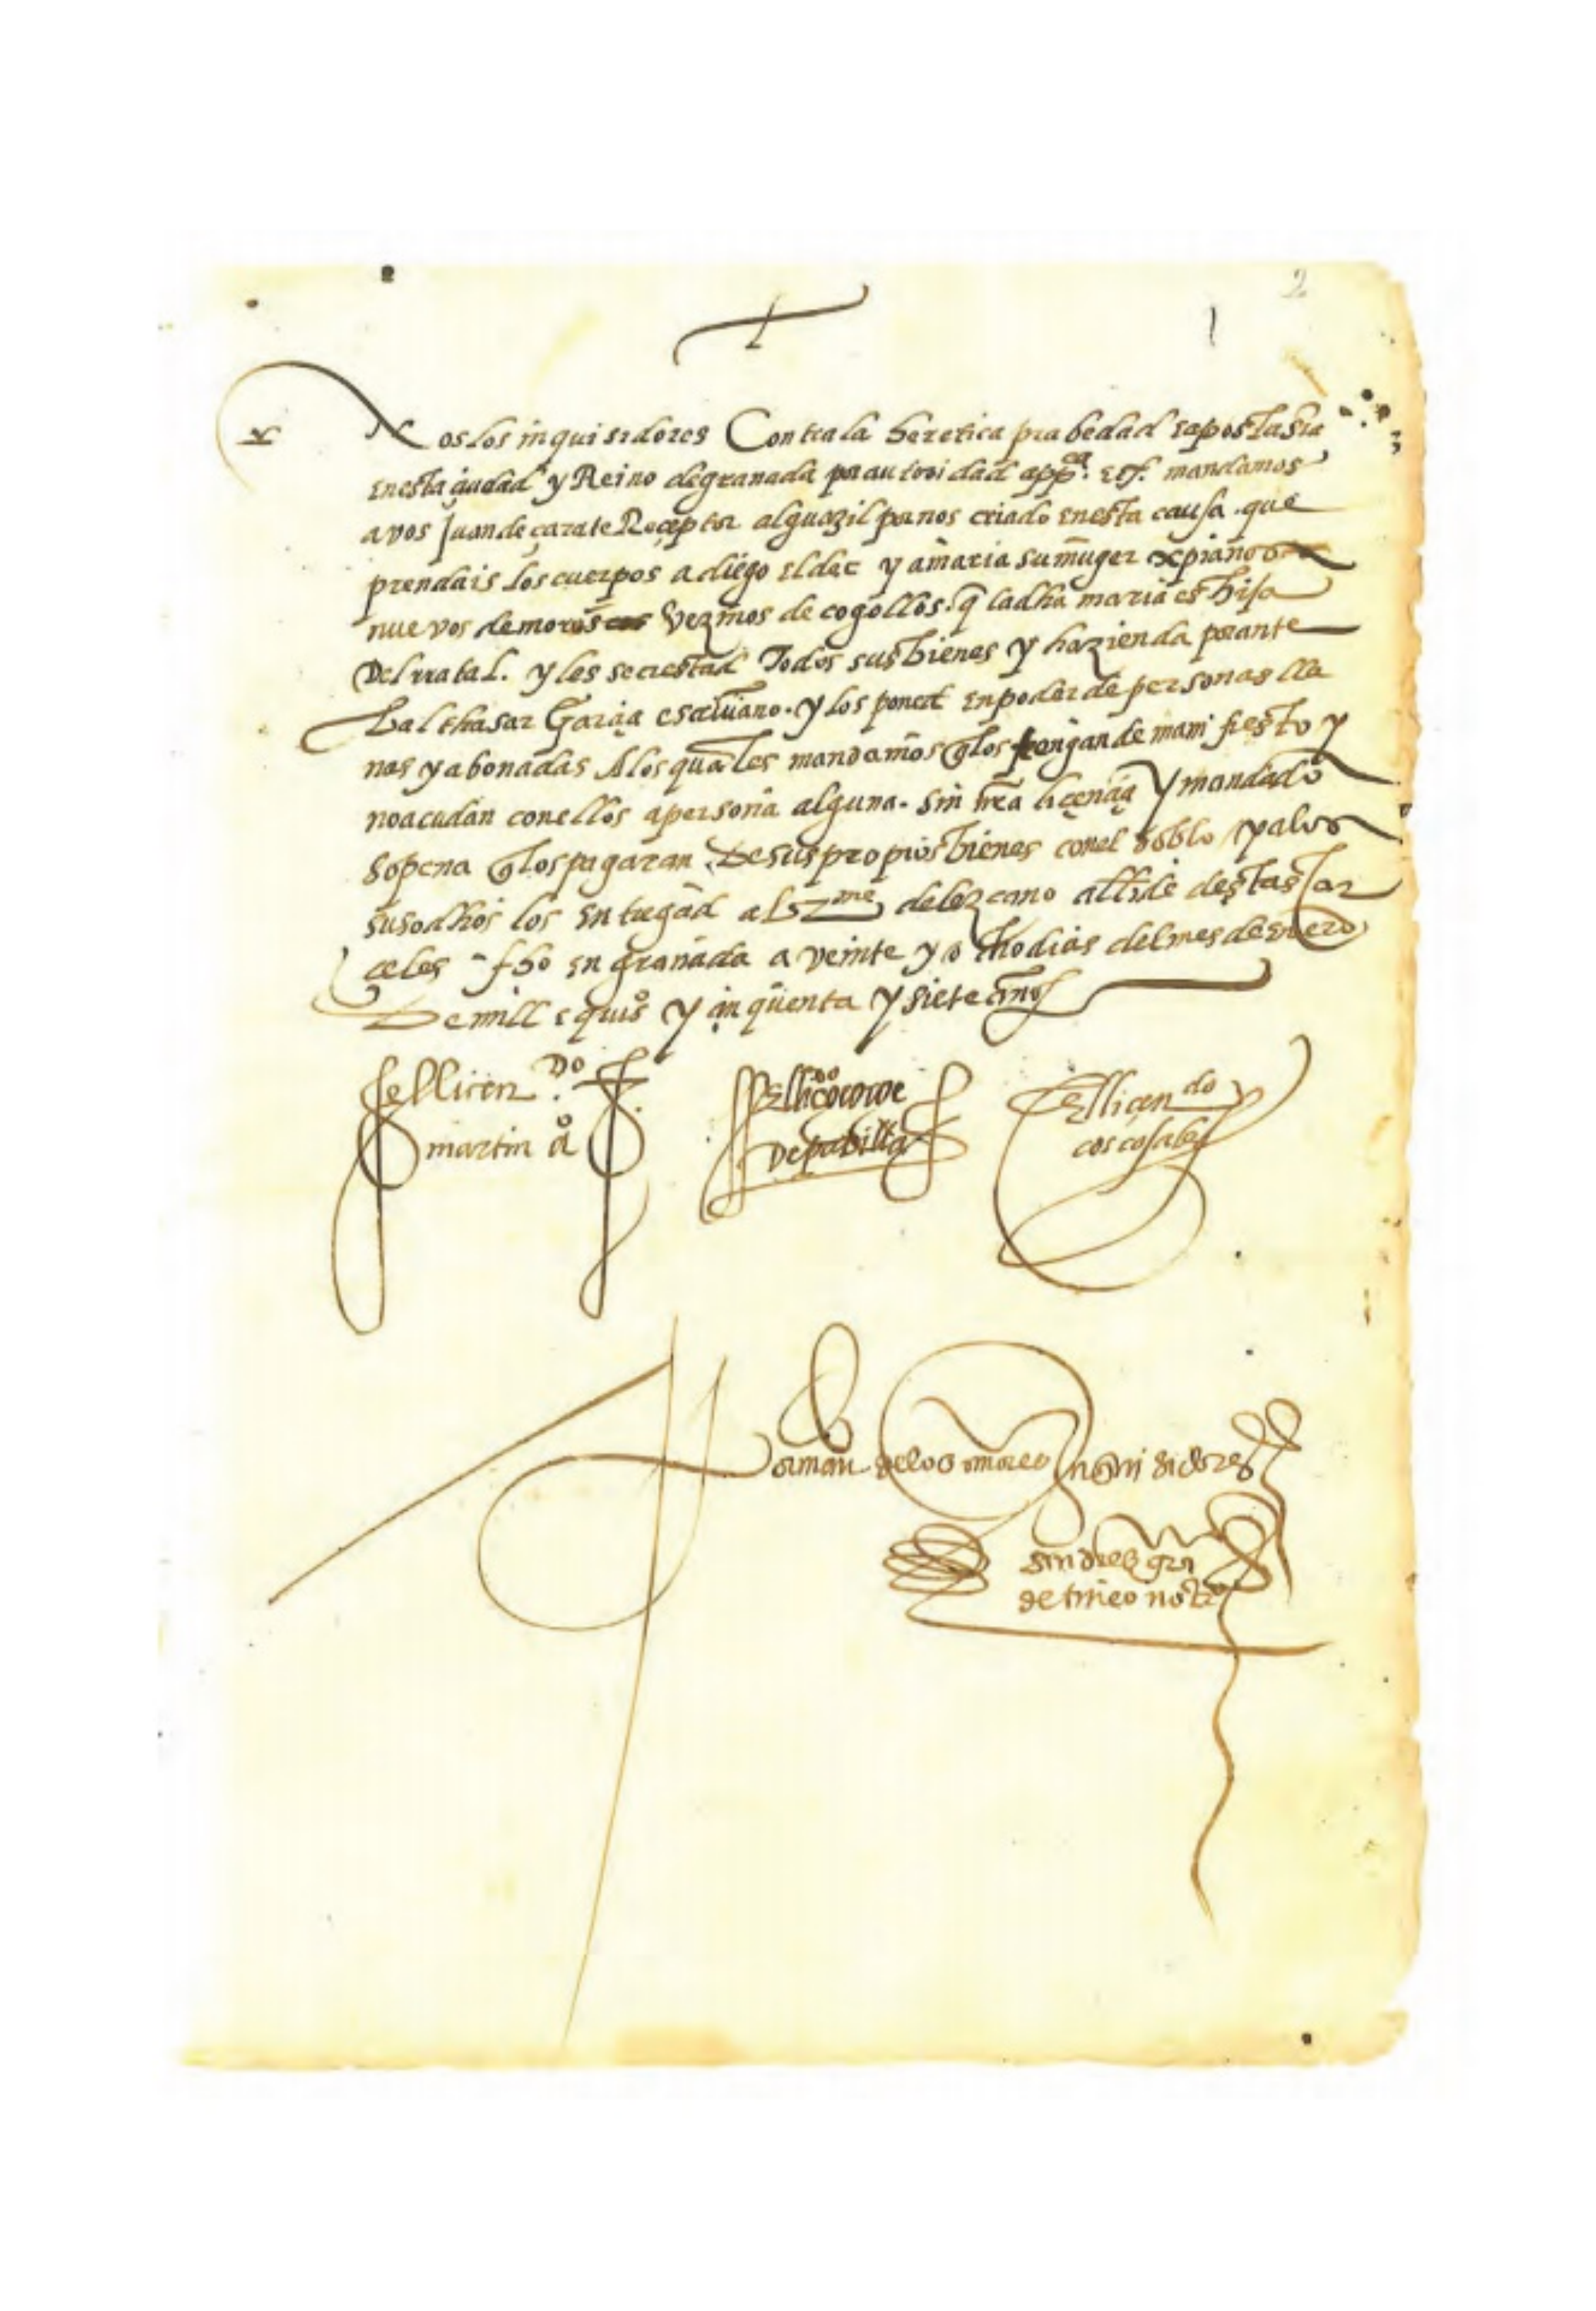 2
Nos los inquisidores Contra la heretica prabedad e apostasia
en esta çiudad y Reino de granada por autoridad app.ca etc. mandamos
a vos Juan de çarate Reçeptor alguazil por nos criado en esta causa. que
prendais los cuerpos a diego el dec y a maria su muger xpianos
nuevos de moros vezinos de cogollos. q la dha maria es hija
Del rratal. y les secrestad Todos sus bienes y hazienda por ante
balthasar Garçia escrivano. y los poned en poder de personas lla
nas y abonadas A los quales mandamos q los tengan de manifiesto y
no acudan con ellos a persona alguna. sin nra liçençia y mandado
so pena q los pagaran De sus propios bienes con el doblo y a los
susodhos los entregad al de lezcano allde destas Car
çeles fho en granada a veinte y ocho dias del mes de enero
De mill e quis y çinquenta y siete años
el licen.do
martin aº
El licdo
De padilla
El liçendo
coscojales
Por mandº de los señores Inquisidores
de tineo notº